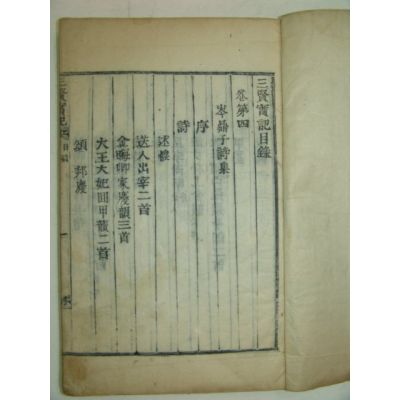 三賢實記目錄
卷第四
岑䶵子詩集
序
詩
述懷
送人出宰二首
金晦卿家慶韻三首
大王大妃回甲韻二首
頌邦慶
三賢實記 目錄 一